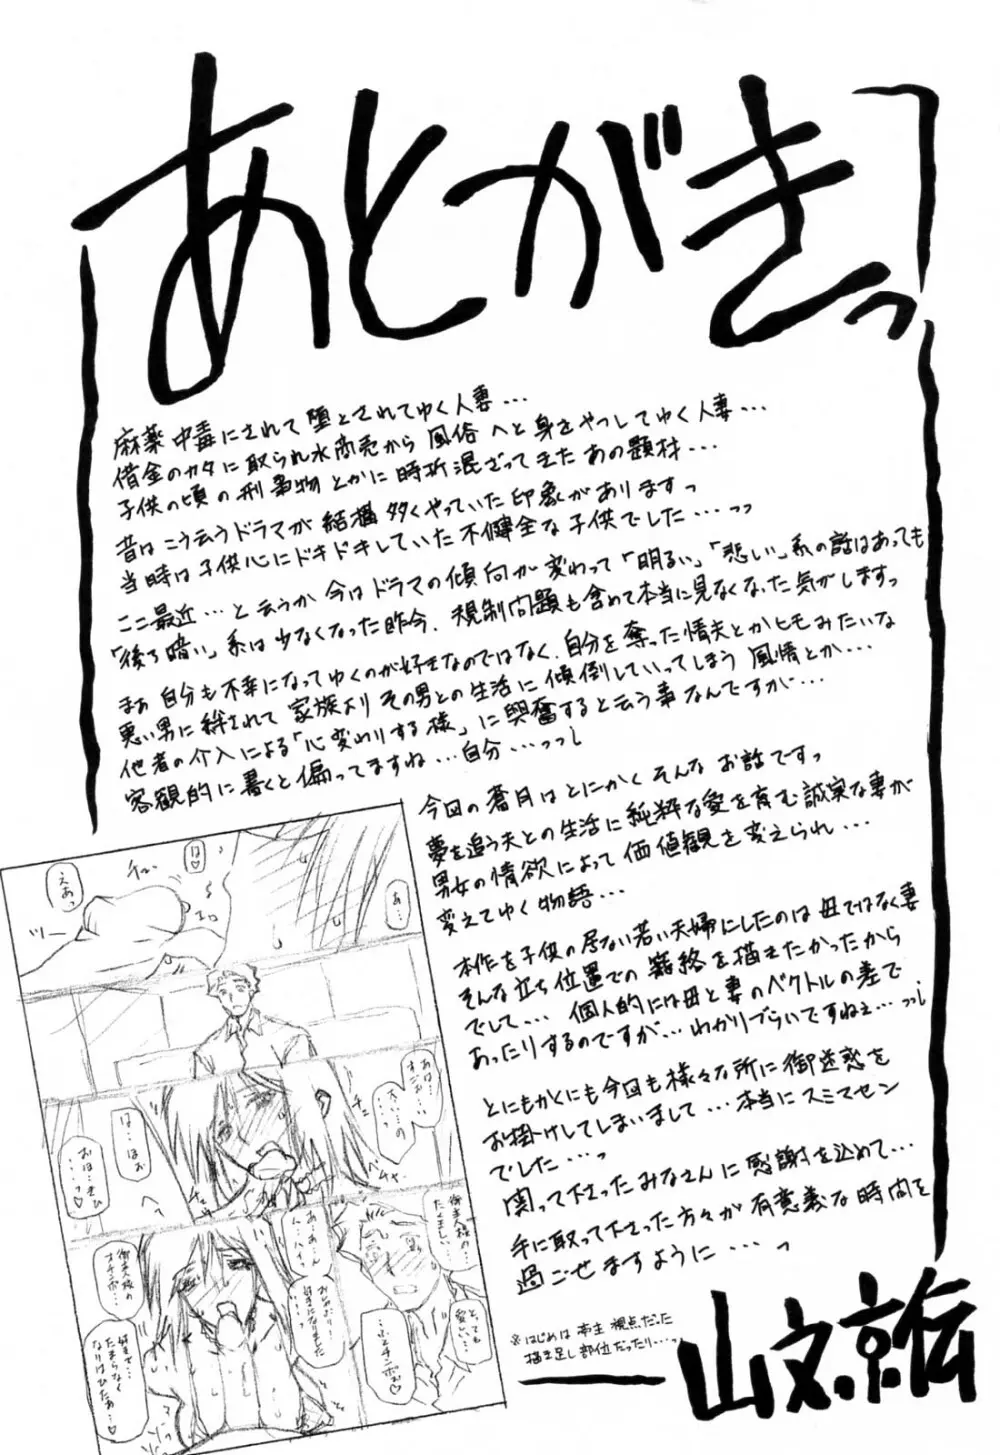 あとがきっ
麻薬中毒にされて堕とされてゆく人妻...
借金のカタに取られ水商売から風俗へと身をやつしてゆく人妻...
子供の頃の刑事物とかに時折混ざってきたあの題材...
昔はこう云うドラマが結構多くやっていた印象がありますっ
当時は子供心にドキドキしていた不健全な子供でした...っっ
ここ最近...と云うか今はドラマの傾向が変わって「明るい」「悲しい」系の話はあっても
「後ろ暗い」系は少なくなった昨今、規制問題も含めて本当に見なくなった気がしますっ
まぁ自分も不幸になってゆくのが好きなのではなく、自分を奪った情夫とかヒモみたいな
悪い男に絆されて家族よりその男との生活に傾倒していってしまう風情とか...
他者の介入による「心変わりする様」に興奮すると云う事なんですが...
客観的に書くと偏ってますね...自分...っっし
今回の蒼月はとにかくそんなお話ですっ
夢を追う夫との生活に純粋な愛を育む誠実な妻が
男女の情欲によって価値観を変えられ...
変えてゆく物語...
本作を子供の居ない若い夫婦にしたのは母ではなく妻
そんな立ち位置での籠絡を描きたかったから
でして...個人的には母と妻のベクトルの差で
あったりするのですが...わかりづらいですねぇ...っっし
とにもかくにも今回も様々な所に御迷惑を
お掛けしてしまいまして...本当にスミマセン
でした...っ
関って下さったみなさんに感謝を込めて...
手に取って下さった方々が有意義な時間を
過ごせますように...っ
※はじめは 亭主 視点だった
描き足し部位だったり...っ
山文京伝
えあっ
は♡
あ...
ツー
は...
ほお